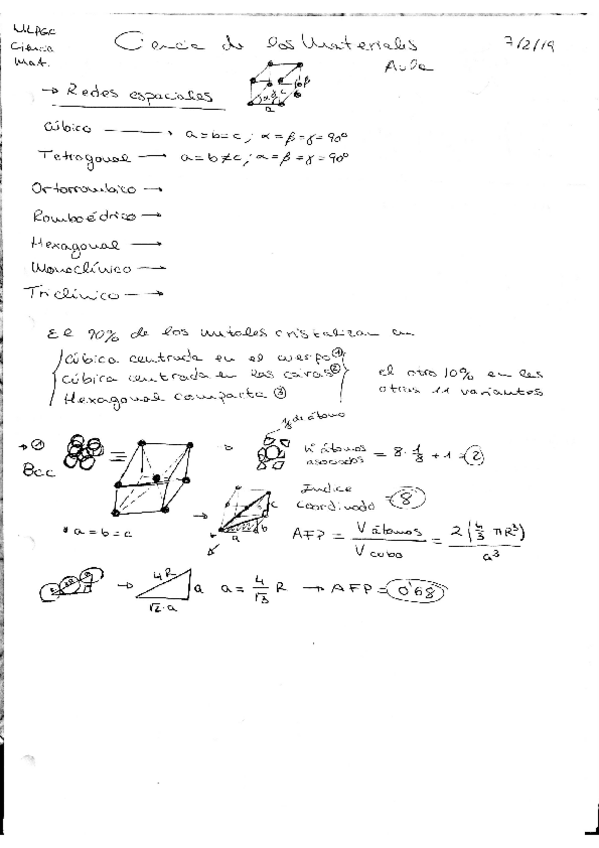 ULPGC
Ciencia
Mat.
Ciencia de los Materiales
7/2/19
Aula
→ Redes espaciales
a
Cúbico → a=b=c; α=β=γ=90°
Tetragonal → a=b≠c; α=β=γ=90°
Ortorrómbico →
Romboédrico →
Hexagonal →
Monoclínico →
Triclínico →
El 90% de los metales cristalizan en
Cúbica centrada en el cuerpo ①
Cúbica centrada en las caras ②
Hexagonal compacta ③
el otro 10% en las
otras 11 variantes
1/8 de átomo
→ ①
BCC
≡
nº átomos asociados = 8·1/8 + 1 = 2
Indice coordinado = 8
* a=b=c
a b c
AFP = V átomos / V cubo = 2(4/3 πR³) / a³
→ 4R a √2·a
a = 4/√3 R → AFP = 0'68